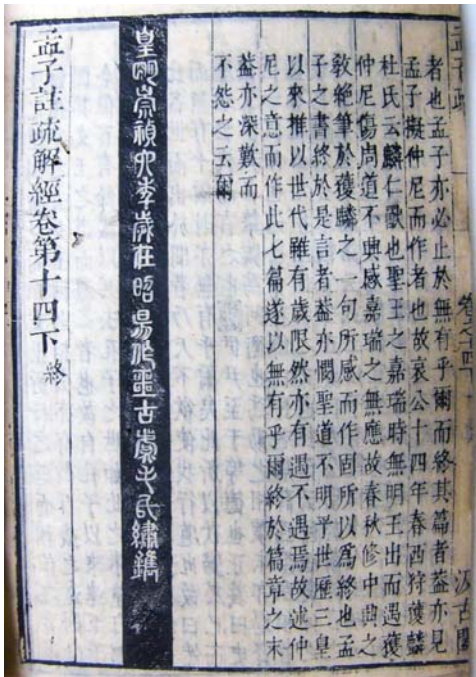 孟子疏 卷十四 汲古閣
者也孟子亦必止於無有乎爾而終其篇者葢亦見
孟子擬仲尼而作者也故哀公十四年春西狩獲麟
杜氏云麟仁獸也聖王之嘉瑞時無明王出而遇獲
仲尼傷周道不興感嘉瑞之無應故春秋修中興之
敎絕筆於獲麟之一句所感而作固所以爲終也孟
子之書終於是言者葢亦憫聖道不明乎世歷三皇
以來推以世代雖有歲限然亦有遇不遇焉故述仲
尼之意而作此七篇遂以無有乎爾終於篇章之末
葢亦深歎而
不怨之云爾
皇明崇禎六年歲在昭陽作噩古虞毛氏繡鐫
孟子註疏解經卷第十四下 終